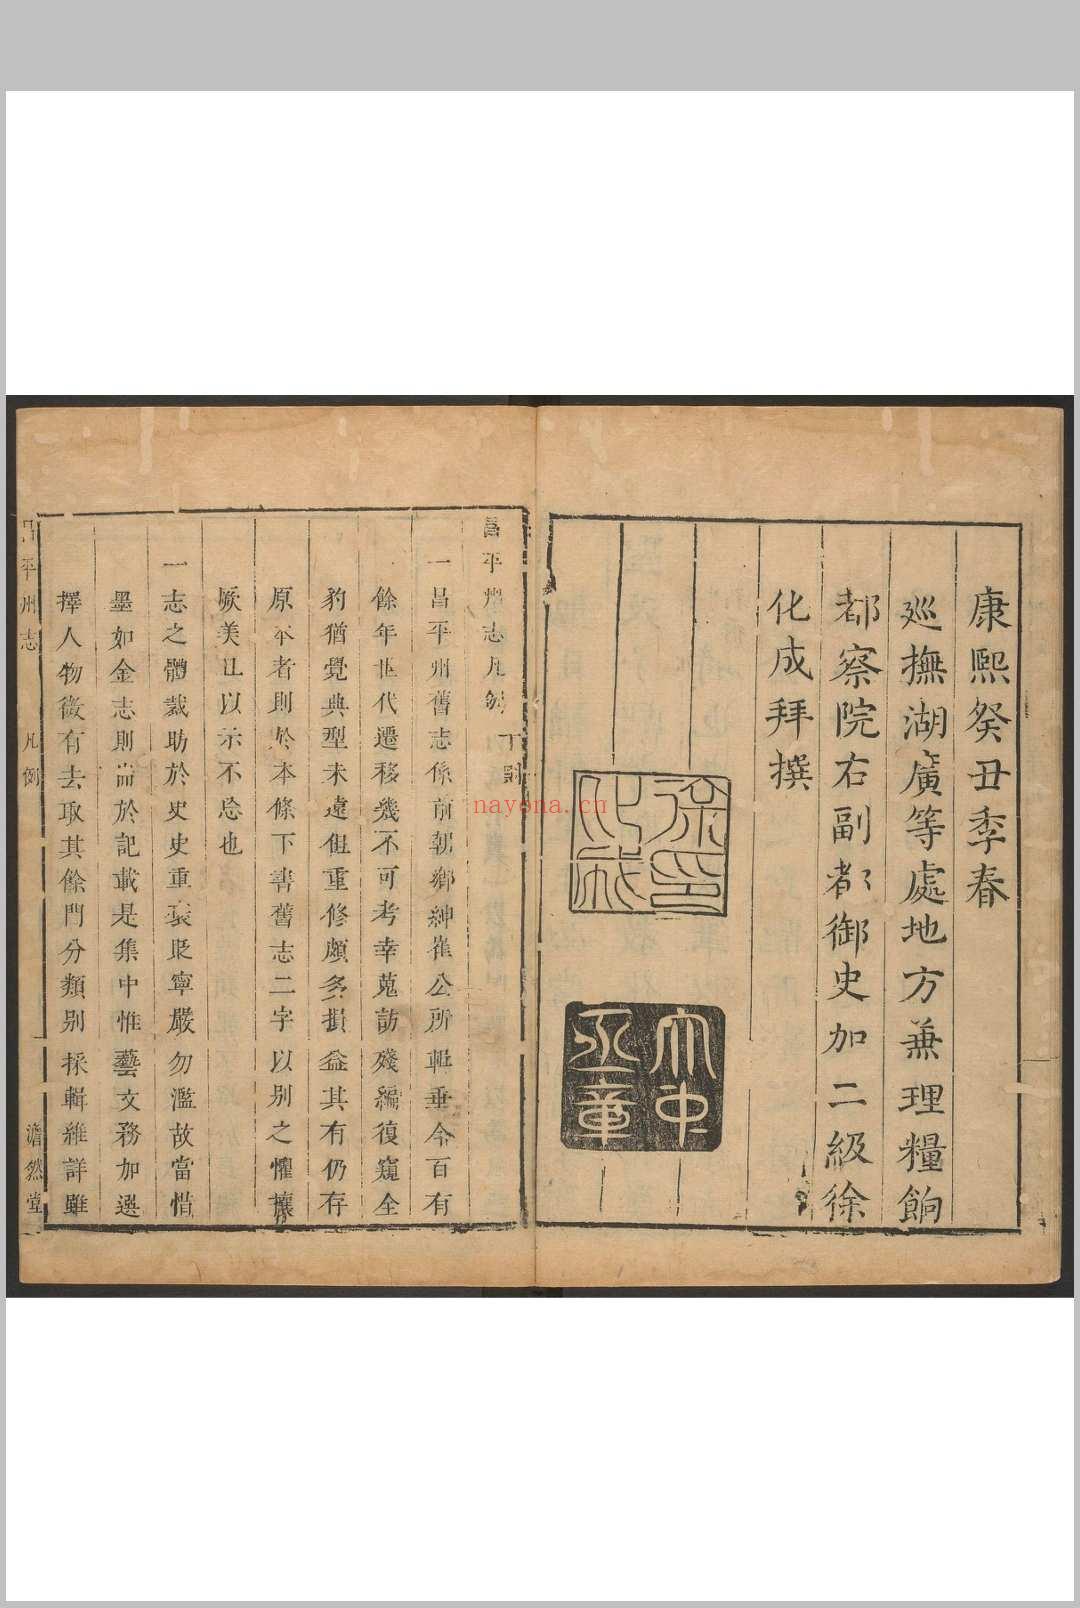 康熙癸丑季春
巡撫湖廣等處地方兼理糧餉
都察院右副都御史加二級徐
化成拜撰
徐化成印
大中丞章
昌平州志凡例
一昌平州舊志係前朝鄉紳崔公所輯垂今百有
餘年世代遷移幾不可考幸蒐訪殘編復窺全
豹猶覺典型未遠但重修頗多損益其有仍存
原本者則於本條下書舊志二字以別之懼攘
厥美且以示不忘也
一志之體裁助於史史重袞貶寧嚴勿濫故當惜
墨如金志則耑於記載是集中惟藝文務加選
擇人物微有去取其餘門分類別採輯維詳雖
昌平州志
凡例
一
澹然堂
nayona.cn